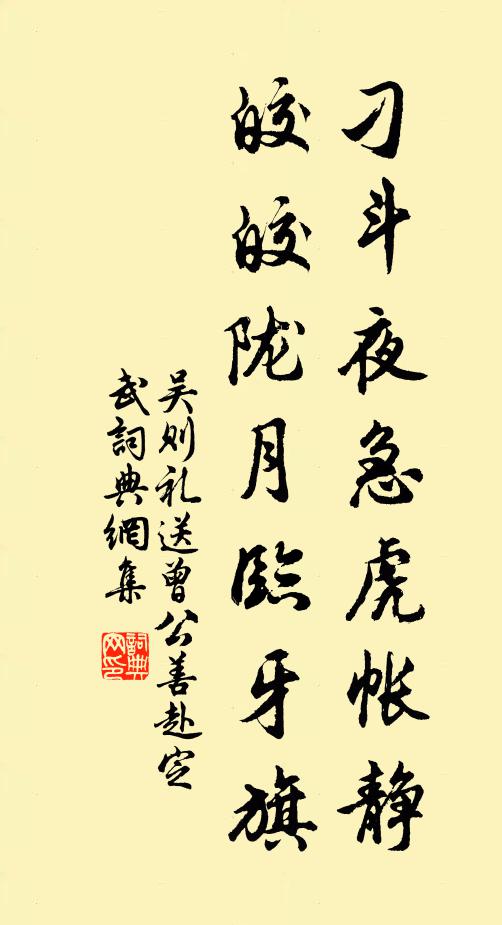 刁斗夜急虎帐静
皎皎陇月臨牙旗
吴则礼送曾公善赴定
武詞典網集
詞典网印